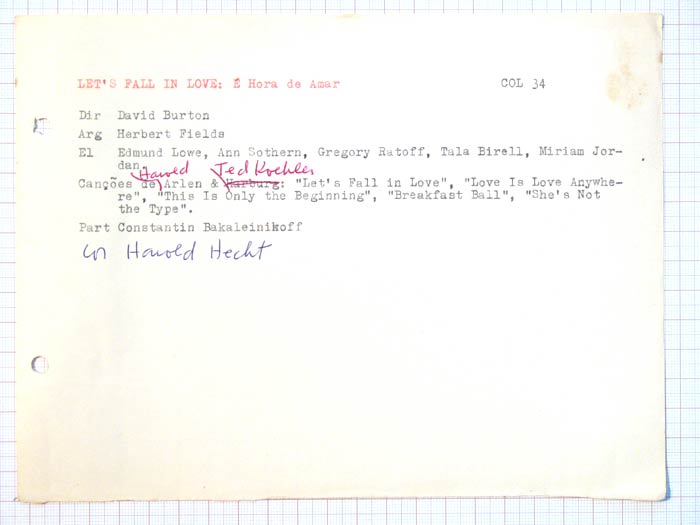 LET'S FALL IN LOVE: É Hora de Amar COL 34
Dir David Burton
Arg Herbert Fields
El Edmund Lowe, Ann Sothern, Gregory Ratoff, Tala Birell, Miriam Jor-
dan.
Harold Ted Koehler
Canções de Arlen & Harburg: "Let's Fall in Love", "Love Is Love Anywhe-
re", "This Is Only the Beginning", "Breakfast Ball", "She's Not
the Type".
Part Constantin Bakaleinikoff
Harold Hecht